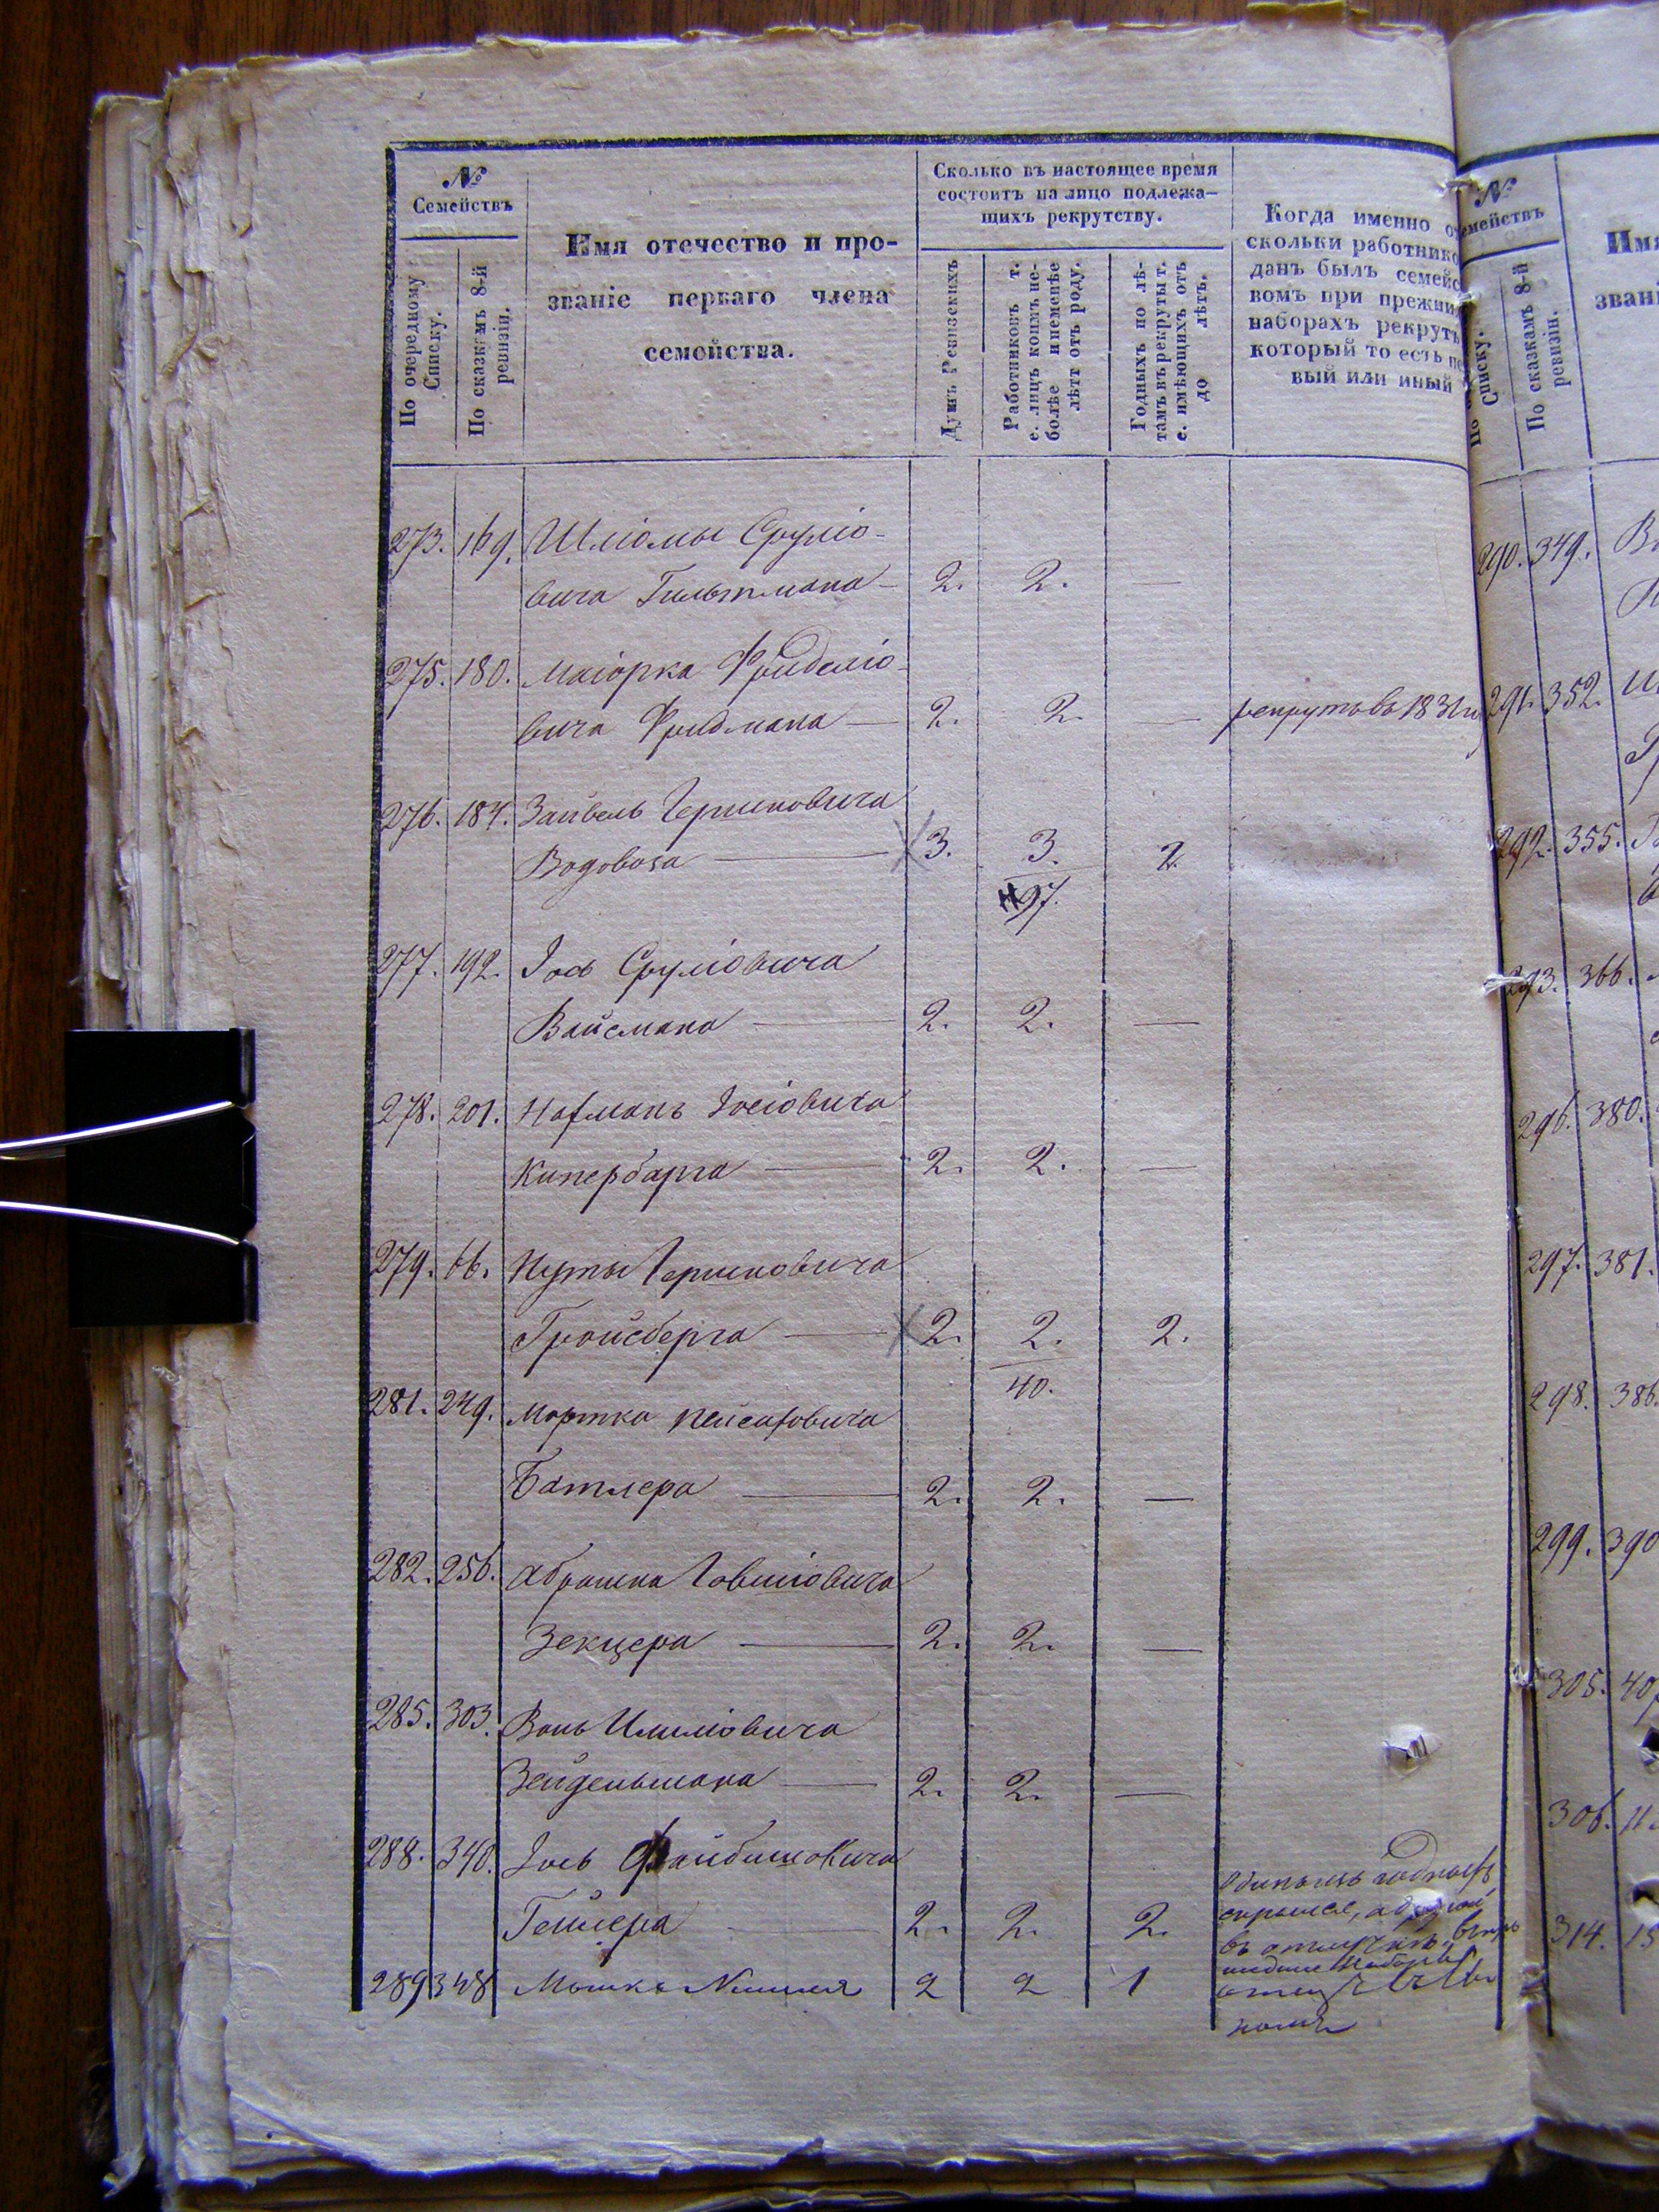 №
Семействъ
По очередному
Списку.
По сказкамъ 8-й
ревизіи.
Имя отечество и про-
званіе перваго члена
семейства.
Сколько въ настоящее время
состоитъ на лицо подлежа-
щихъ рекрутству.
Душъ Ревизскихъ
Работниковъ т.
е. лицъ коимъ не-
болѣе и неменѣе
лѣтъ отъ роду.
Годныхъ по лѣ-
тамъ въ рекруты т.
е. имѣющихъ отъ
до лѣтъ.
Когда именно
скольки работнико
данъ былъ семейс
вомъ при прежни
наборахъ рекрутъ
который то есть пе
вый или иный
273. 169. Шліомы Сруліо-
вича Гильтмана 2. 2. —
275. 180. Маіорка Фриделіо-
вича Фридмана — 2. 2. — рекрутъ въ 1831
276. 184. Зайвель Гершковича
Водовоза — 3. 3. 2.
97.
277. 192. Іось Сруліовича
Вайсмана — 2. 2. —
278. 201. Нахманъ Іосіовича
Кипербарга — 2. 2. —
279. 66. Нуты Гершковича
Гройсберга — 2. 2. 2.
40.
281. 249. Мортка Пейсаховича
Батлера — 2. 2. —
282. 256. Абрашка Говшіовича
Зекцера — 2. 2. —
285. 303. Вонь Шмиліовича
Зейденьмана — 2. 2. —
288. 340. Іось Файбишовича
Гейлера — 2. 2. 2.
скрылся, а другой
въ
289 348 Мошка 2 2 1
№
емействъ
Списку.
По сказкамъ 8-й
ревизіи.
Имя
звані
290. 349.
291. 352.
292. 355.
293. 366.
296. 380.
297. 381.
298. 386.
299. 390
305. 40
306.
314.